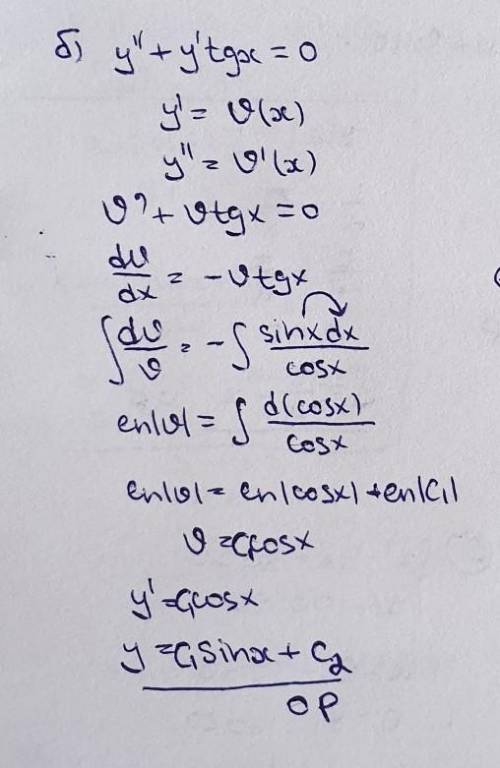 б) y'' + y' tgx = 0
y' = υ(x)
y'' = υ'(x)
υ' + υ tgx = 0
dυ/dx = -υ tgx
∫ dυ/υ = -∫ sinx dx/cosx
ln|υ| = ∫ d(cosx)/cosx
ln|υ| = ln|cosx| + ln|C₁|
υ = C₁cosx
y' = C₁cosx
y = C₁sinx + C₂
ОР